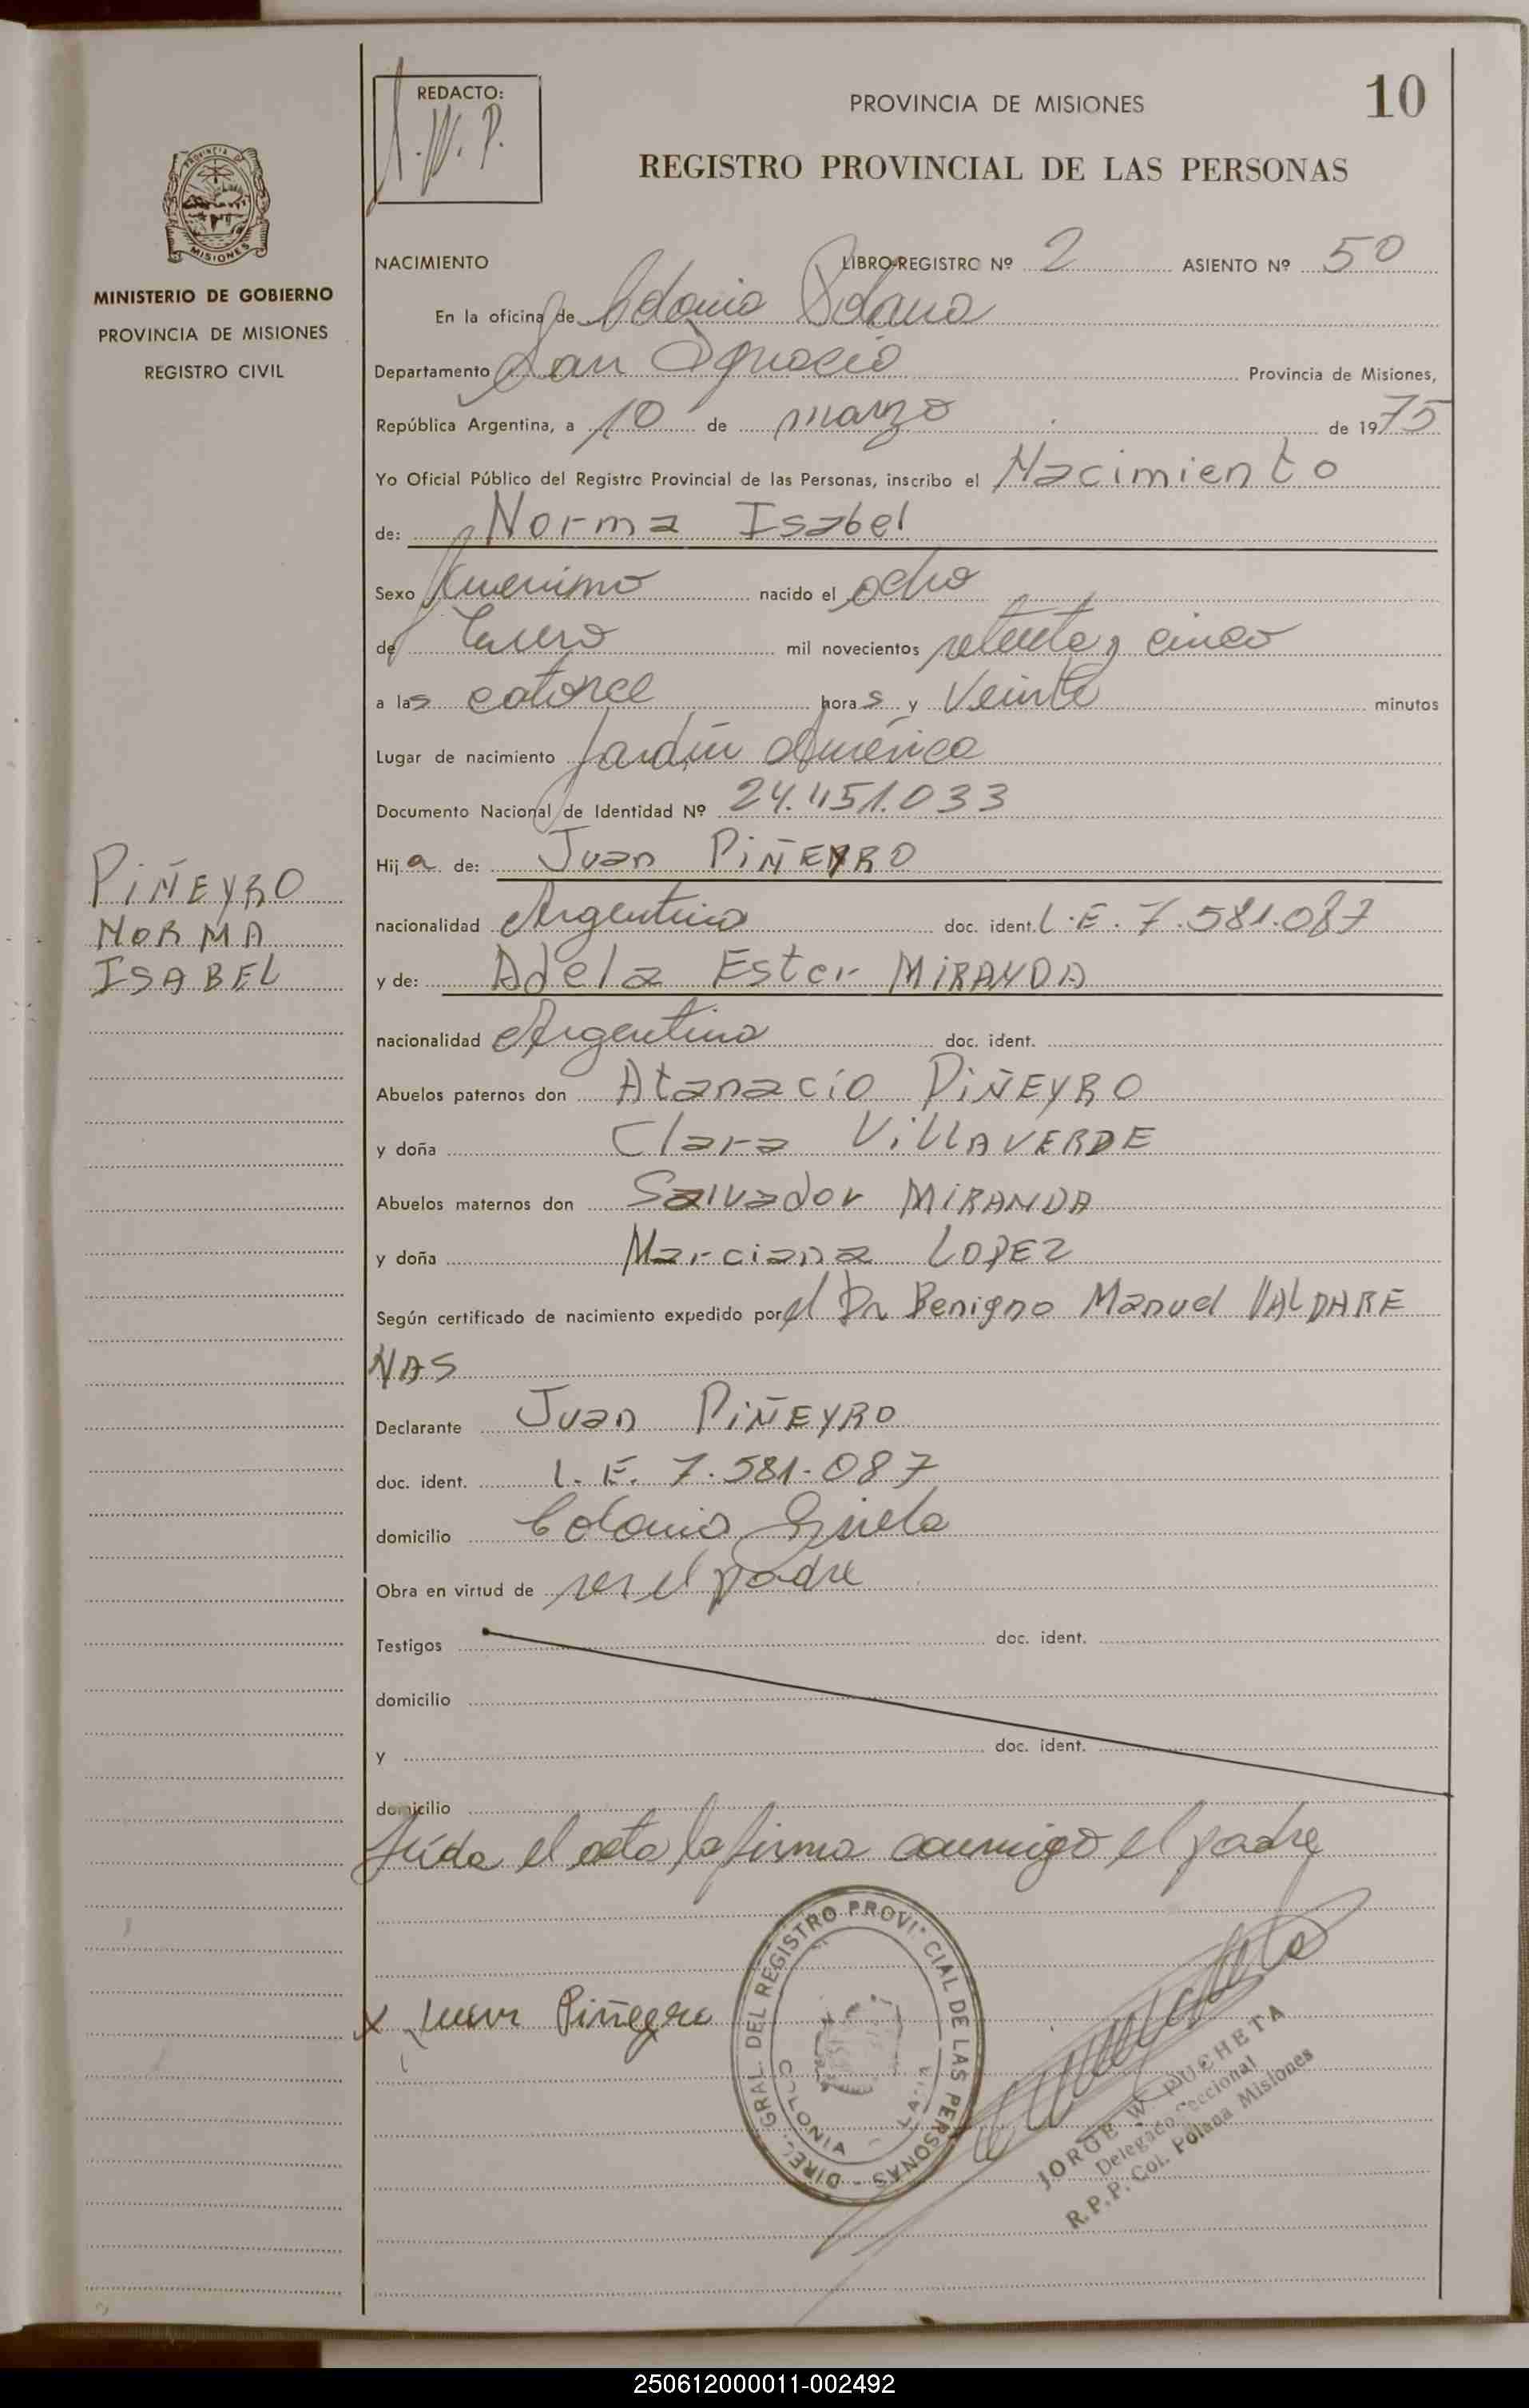 REDACTO:
J.W.P.
PROVINCIA DE MISIONES
10
REGISTRO PROVINCIAL DE LAS PERSONAS
PROVINCIA DE
MISIONES
MINISTERIO DE GOBIERNO
PROVINCIA DE MISIONES
REGISTRO CIVIL
NACIMIENTO LIBRO-REGISTRO Nº 2 ASIENTO Nº 50
En la oficina de Colonia Polana
Departamento San Ignacio Provincia de Misiones,
República Argentina, a 10 de marzo de 1975
Yo Oficial Público del Registro Provincial de las Personas, inscribo el Nacimiento
de: Norma Isabel
Sexo nacido el ocho
de Enero mil novecientos setenta y cinco
a las catorce horas y Veinte minutos
Lugar de nacimiento Jardín América
Documento Nacional de Identidad Nº 24.451.033
Hija de: Juan PIÑEYRO
PIÑEYRO
NORMA
ISABEL
nacionalidad Argentina doc. ident. L.E. 7.581.087
y de: Adela Ester MIRANDA
nacionalidad Argentina doc. ident.
Abuelos paternos don Atanacio PIÑEYRO
y doña Clara VILLAVERDE
Abuelos maternos don Salvador MIRANDA
y doña Marciana LOPEZ
Según certificado de nacimiento expedido por el Dr Benigno Manuel VALDARE
NAS
Declarante Juan PIÑEYRO
doc. ident. L.E. 7.581.087
domicilio Colonia Gisela
Obra en virtud de ser el padre
Testigos doc. ident.
domicilio
y doc. ident.
domicilio
Leída el acta la firma conmigo el padre
x Juan Piñeyro
DIREC. GRAL. DEL REGISTRO PROVINCIAL DE LAS PERSONAS
COLONIA
JORGE W. PUCHETA
Delegado Seccional
R.P.P. Col. Polana Misiones
250612000011-002492